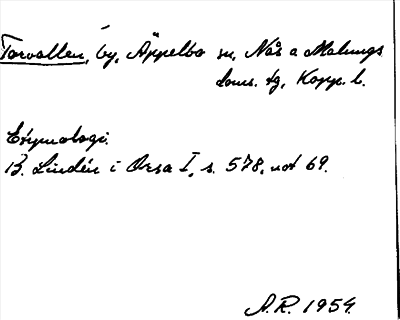 Torvallen, by, Äppelbo sn, Nås o Malungs
doms. tg, Kopp. l.
Etymologi.
B. Lindén i Orsa I, s. 578, not 69.
A.R. 1954.